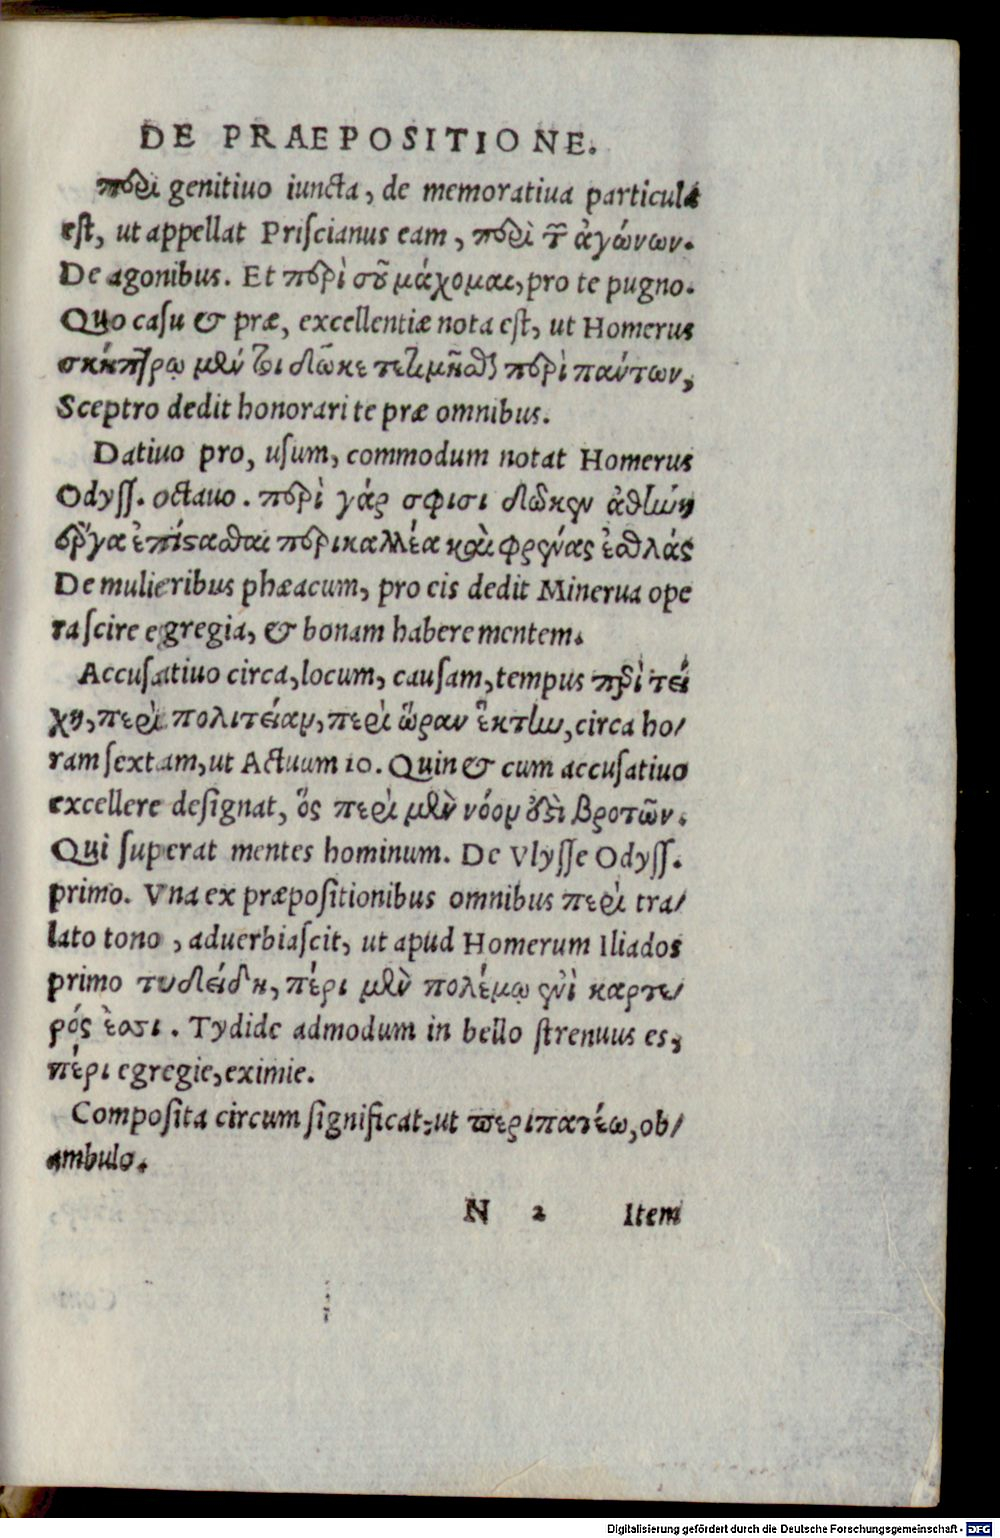 DE PRAEPOSITIONE.
περὶ genitiuo iuncta, de memoratiua particula
est, ut appellat Priscianus eam, περὶ τῶν ἀγώνων.
De agonibus. Et περὶ σοῦ μάχομαι, pro te pugno.
Quo casu & præ, excellentiæ nota est, ut Homerus
σκήπτρῳ μέν τοι δῶκε τετιμῆσθαι περὶ πάντων,
Sceptro dedit honorari te præ omnibus.
Datiuo pro, usum, commodum notat Homerus
Odyss. octauo. περὶ γάρ σφισι δῶκεν ἀθήνη
ἔργα ἐπίστασθαι περικαλλέα καὶ φρένας ἐσθλάς
De mulieribus phæacum, pro eis dedit Minerua ope
ra scire egregia, & bonam habere mentem.
Accusatiuo circa, locum, causam, tempus περὶ τεί
χη, περὶ πολιτείαν, περὶ ὥραν ἕκτην, circa ho/
ram sextam, ut Actuum 10. Quin & cum accusatiuo
excellere designat, ὅς περὶ μὲν νόον ἐστὶ βροτῶν.
Qui superat mentes hominum. De Vlysse Odyss.
primo. Vna ex præpositionibus omnibus περὶ tra/
lato tono, aduerbiascit, ut apud Homerum Iliados
primo τυδείδη, πέρι μὲν πολέμῳ ἐνὶ καρτε/
ρός ἐσσι. Tydide admodum in bello strenuus es,
πέρι egregie, eximie.
Composita circum significat, ut περιπατέω, ob/
ambulo.
N 2 Item
Digitalisierung gefördert durch die Deutsche Forschungsgemeinschaft - DFG